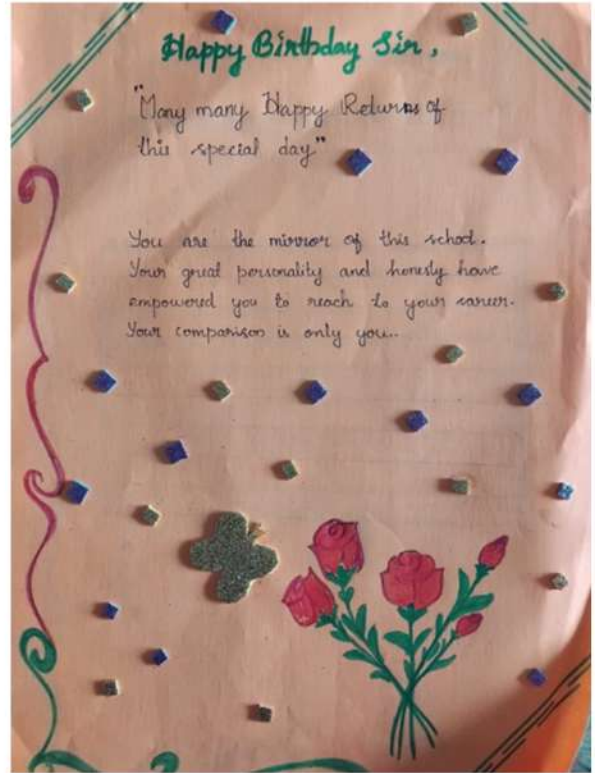 Happy Birthday Sir,
"Many many Happy Returns of
this special day"
You are the mirror of this school.
Your great personality and honesty have
empowered you to reach to your career.
Your comparison is only you..